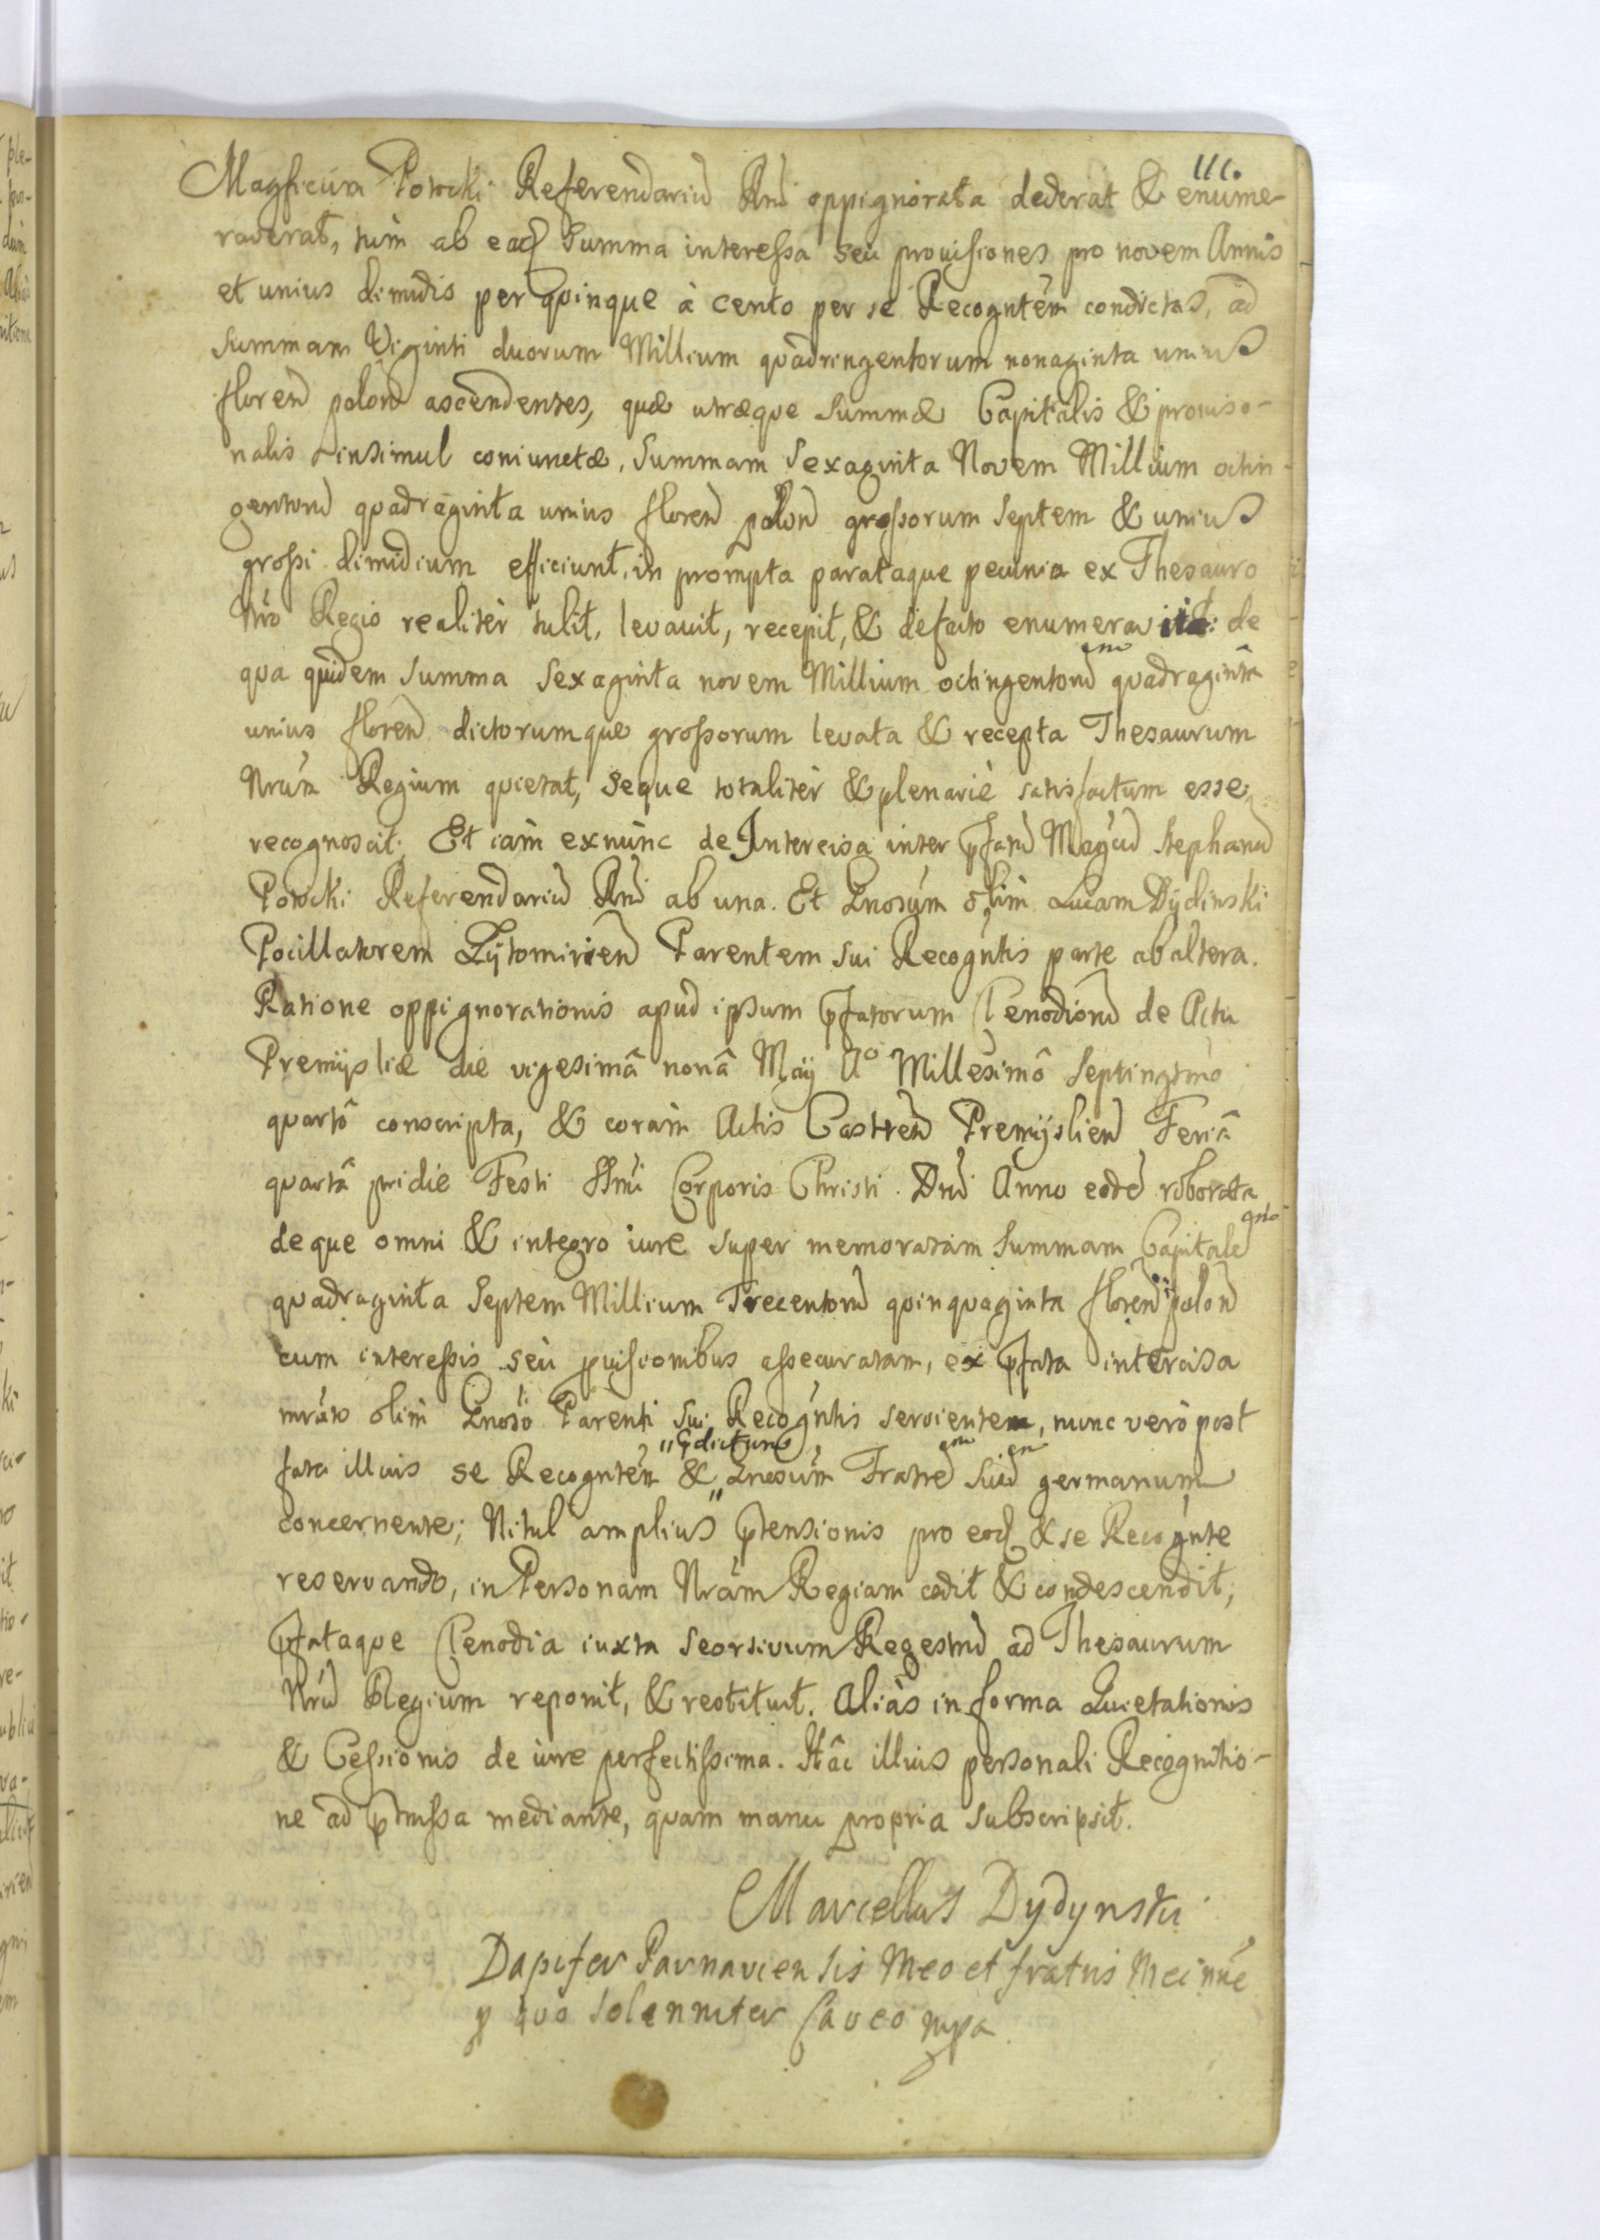 111.
Magficum Potocki Referendariu Rni oppignorata dederat & enume-
raverat, tum ab eadq Summa interessa seu provisiones pro novem Annis
et unius dimidis per quinque à cento per se Recogntem condictas, ad
summam Viginti duorum Millium quadringentorum nonaginta unius
floren polon ascendentes, quæ utræque summæ Capitalis & proviso-
nalis insimul coniunctæ, Summam Sexaginta Novem Millium octin-
gentoru quadraginta unius floren polon grossorum Septem & unius
grossi dimidium efficiunt, in prompta parataque pecunia ex Thesauro
Nro Regio realiter tulit, levavit, recepit, & defacto enumeravit: de
qua quidem summa sexaginta novem Millium octingentoru quadraginta
unius floren dictorumque grossorum levata & recepta Thesaurum
Nrum Regium quietat, seque totaliter & plenariè satisfactum esse
recognoscit. Et iam exnunc de Intercisa inter pfatu Magcu Stephanu
Potocki Referendariu Rni ab una. Et Gnosum olim Lucam Dydinski
Pocillatorem Zytomirien Parentem sui Recogntis parte ab altera.
Ratione oppignorationis apud ipsum pfatorum Clenodioru de Actu
Premysliæ die vigesimâ nonâ Maij Aº Millesimô Septingtmo
quartô conscripta, & coram Actis Castren Premyslien Feriâ
quartâ pridie Festi SSmi Corporis Christi Dni Anno eode roborata
deque omni & integro iure super memoratam Summam Capitale
quadraginta Septem Millium Trecentoru quinquaginta floren polon
cum interessis seu pvisionibus assecuratam, ex pfata intercisa
mrato olim Gnoso Parenti sui Recogntis serviente, nunc verò post
fata illius se Recogntem & Gnosum Fratre suu germanum
concernente; Nihil amplius ptensionis pro eodq & se Recognte
reservando, in Personam Nram Regiam cedit & condescendit;
pfataque Clenodia iuxta seorsivum Regestru ad Thesaurum
Nru Regium reponit, & restituit. Aliàs in forma Quietationis
& Cessionis de iure perfectissima. Hâc illius personali Recognitio-
ne ad pmissa mediante, quam manu propria subscripsit.
Marcellus Dydynski
Dapifer Parnaviensis Meo et fratris Mei nne
p quo Solenniter Caveo mpa